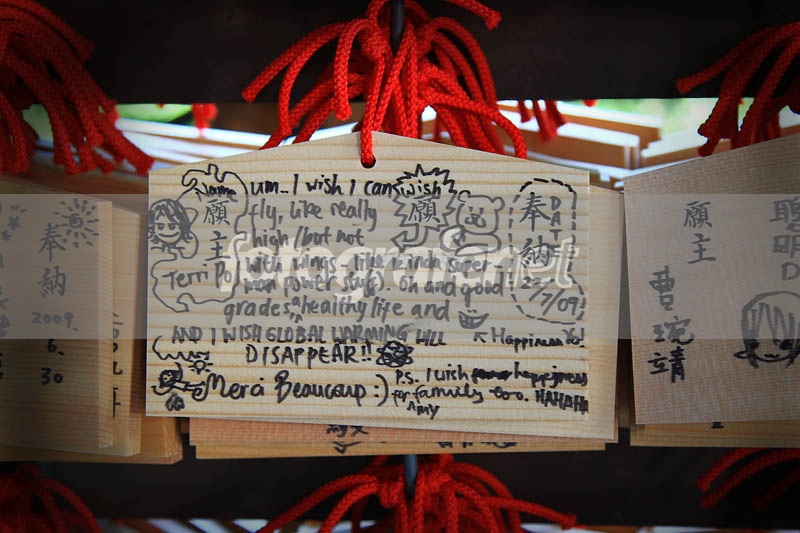 Name
願主
Terri Po
um... I wish I can
fly, like really
high/but not
with wings - like
man power stuff). Oh and good
grades, a healthy life and
AND I WISH GLOBAL WARMING WILL
DISAPPEAR!!
Merci Beaucoup :)
wish
願
奉納
DATE
22/7/09
Happiness Yo!
P.S. I wish happiness
for my family too. HAHAHA
奉納
2009.
6.
30
願主
曹琬靖
聰明
fotografi.net